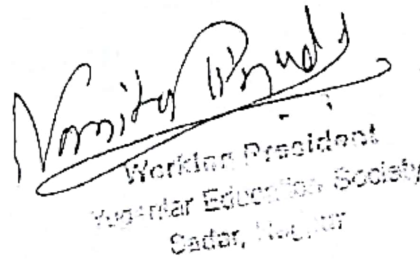 Working President
Yugantar Education Society
Sadar, Nagpur